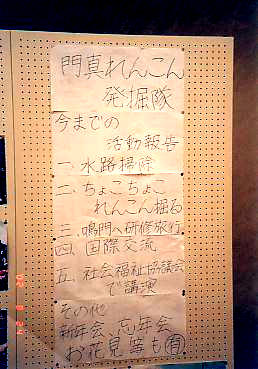 門真れんこん
発掘隊
今までの
活動報告
一、水路掃除
二、ちょこちょこ
れんこん掘る
三、鳴門へ研修旅行
四、国際交流
五、社会福祉協議会
で講演
その他
新年会、忘年会
お花見等も有